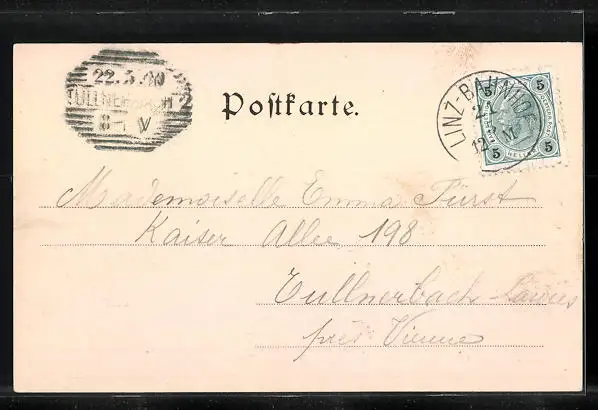 22.5.00
TULLNERBACH 2
8-1 V
Postkarte.
LINZ-BAHNHOF
12
5 5
5 5
HELLER
Mademoiselle Emma Fürst
Kaiser Allee 198
Tullnerbach-Lawies
près Vienne